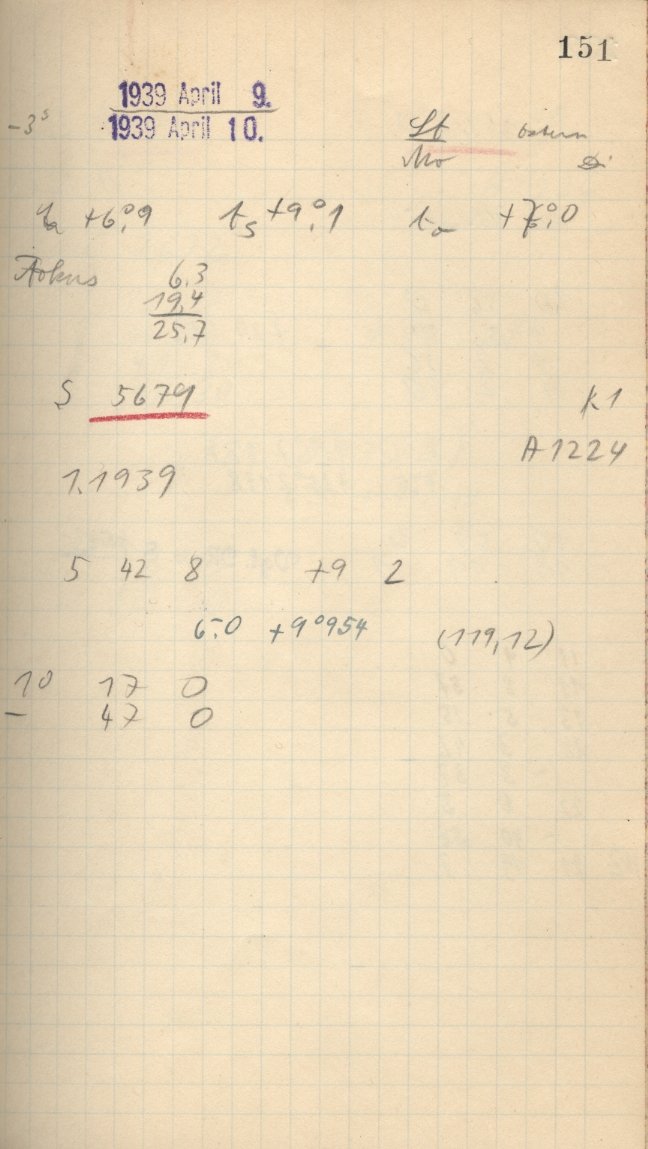 151
1939 April 9.
1939 April 10.
-3ˢ
St Ostern
Mo
+6°,9 tₛ +9°,1 +7°,0
Fokus 6,3
19,4
25,7
S 5679 K1
A1224
1.1939
5 42 8 +9 2
6,0 +9°954 (119,12)
10 17 0
- 47 0